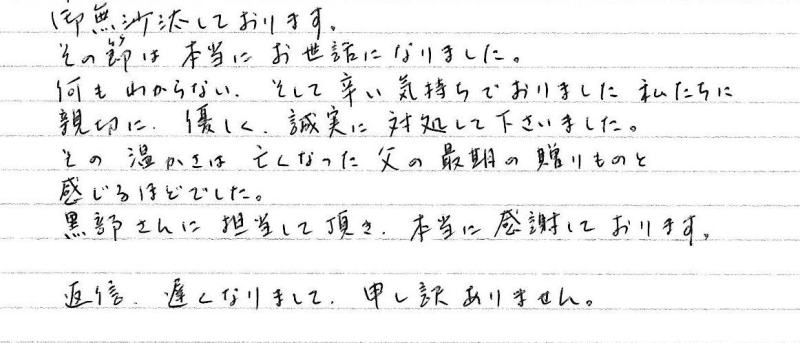 御無沙汰しております。
その節は本当にお世話になりました。
何もわからない、そして辛い気持ちでおりました私たちに
親切に、優しく、誠実に対処して下さいました。
その温かさは亡くなった父の最期の贈りものと
感じるほどでした。
黒部さんに担当して頂き、本当に感謝しております。
返信、遅くなりまして、申し訳ありません。